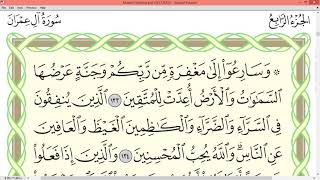 الجُزْءُ الرَّابِعُ سُورَةُ آلِ عِمْرَانَ
۞ وَسَارِعُوٓا۟ إِلَىٰ مَغْفِرَةٍ مِّن رَّبِّكُمْ وَجَنَّةٍ عَرْضُهَا
ٱلسَّمَٰوَٰتُ وَٱلْأَرْضُ أُعِدَّتْ لِلْمُتَّقِينَ ١٣٣ ٱلَّذِينَ يُنفِقُونَ
فِى ٱلسَّرَّآءِ وَٱلضَّرَّآءِ وَٱلْكَٰظِمِينَ ٱلْغَيْظَ وَٱلْعَافِينَ
عَنِ ٱلنَّاسِ ۗ وَٱللَّهُ يُحِبُّ ٱلْمُحْسِنِينَ ١٣٤ وَٱلَّذِينَ إِذَا فَعَلُوا۟